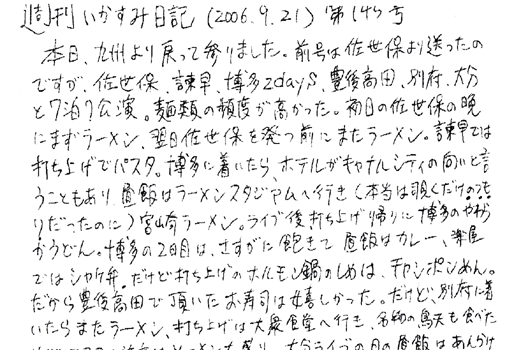 週刊いかすみ日記 (2006.9.21) 第145号
本日、九州より戻って参りました。前号は佐世保より送ったの
ですが、佐世保、諫早、博多2days、豊後高田、別府、大分
と7泊7公演。麺類の頻度が高かった。初日の佐世保の晩
にまずラーメン、翌日佐世保を発つ前にまたラーメン。諫早では
打ち上げでパスタ。博多に着いたら、ホテルがキャナルシティの向いと言
うこともあり、昼飯はラーメンスタジアムへ行き(本当は覗くだけのつも
りだったのに)宮崎ラーメン。ライブ後打ち上げ帰りに博多のやわ
かうどん。博多の2日目は、さすがに飽きて昼飯はカレー、楽屋
ではシャケ弁。だけど打ち上げのホルモン鍋のしめは、チャンポンめん。
だから豊後高田で頂いたお寿司は嬉しかった。だけど、別府に着
いたらまたラーメン、打ち上げは大衆食堂へ行き、名物の鳥天も食べた
大分ライブの日の昼飯はあんかけ